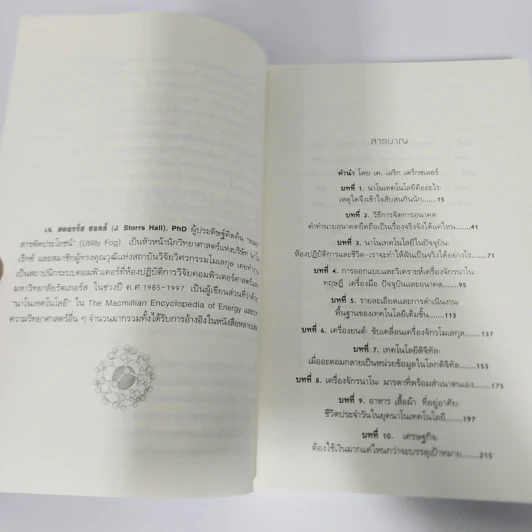 เจ. สตอรร์ส ฮอลล์ (J. Storrs Hall), PhD ผู้ประดิษฐ์คิดค้น
สารพัดประโยชน์" (Utility Fog) เป็นหัวหน้านักวิทยาศาสตร์แห่งบริษัท
เริกซ์ และสมาชิกผู้ทรงคุณวุฒิแห่งสถาบันวิจัยวิศวกรรมโมเลกุล
เป็นสถาปนิกระบบคอมพิวเตอร์ที่ห้องปฏิบัติการวิจัยคอมพิวเตอร์ศาสตร์
มหาวิทยาลัยรัตเกอร์ส ในช่วงปี ค.ศ.1985-1997 เป็นผู้เขียนส่วนที่ว่าด้วย
"นาโนเทคโนโลยี" ใน The Macmillian Encyclopedia of Energy
ความวิทยาศาสตร์อื่น ๆ จำนวนมากรวมทั้งได้รับการอ้างอิงในหนังสือหลายเล่ม
สารบาญ
คำนำ โดย เค. เอริก เดร็กซเลอร์
บทที่ 1. นาโนเทคโนโลยีคืออะไร
เหตุใดจึงเข้าใจสับสนกันนัก......15
บทที่ 2. วิธีการจัดการอนาคต:
คำทำนายอนาคตยึดถือเป็นเรื่องจริงจังได้แค่ไหน......41
บทที่ 3. นาโนเทคโนโลยีในปัจจุบัน:
ห้องปฏิบัติการและชีวิต-เราจะทำให้ฝันเป็นจริงได้อย่างไร......71
บทที่ 4. การออกแบบและวิเคราะห์เครื่องจักรนาโน:
ทฤษฎี เครื่องมือ ปัจจุบันและอนาคต......95
บทที่ 5. รายละเอียดและการดำเนินงาน:
พื้นฐานของเทคโนโลยีเต็มขั้น......113
บทที่ 6. เครื่องยนต์: ขับเคลื่อนเครื่องจักรโมเลกุล......137
บทที่ 7. เทคโนโลยีดิจิทัล:
เมื่ออะตอมกลายเป็นหน่วยข้อมูลในโลกดิจิทัล......153
บทที่ 8. เครื่องจักรนาโน: มารดาที่พร้อมสำเนาตนเอง......175
บทที่ 9. อาหาร เสื้อผ้า ที่อยู่อาศัย:
ชีวิตประจำวันในยุคนาโนเทคโนโลยี......197
บทที่ 10. เศรษฐกิจ:
ต้องใช้เงินมากแค่ไหนกว่าจะบรรลุเป้าหมาย......215